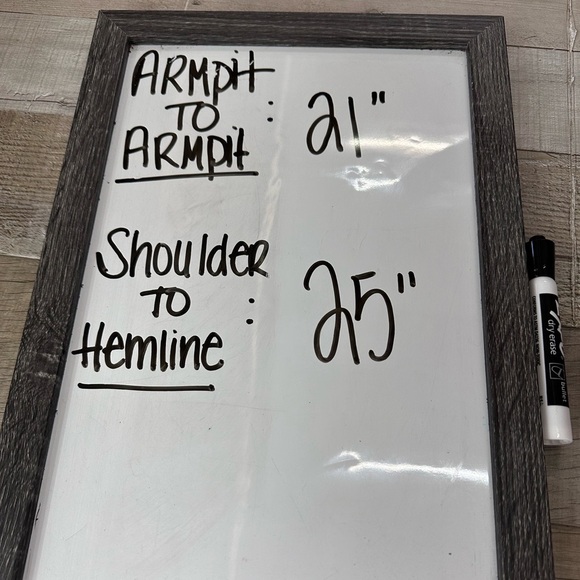 ARMpit
TO : 21"
ARMpit
Shoulder
TO : 25"
Hemline
dry erase